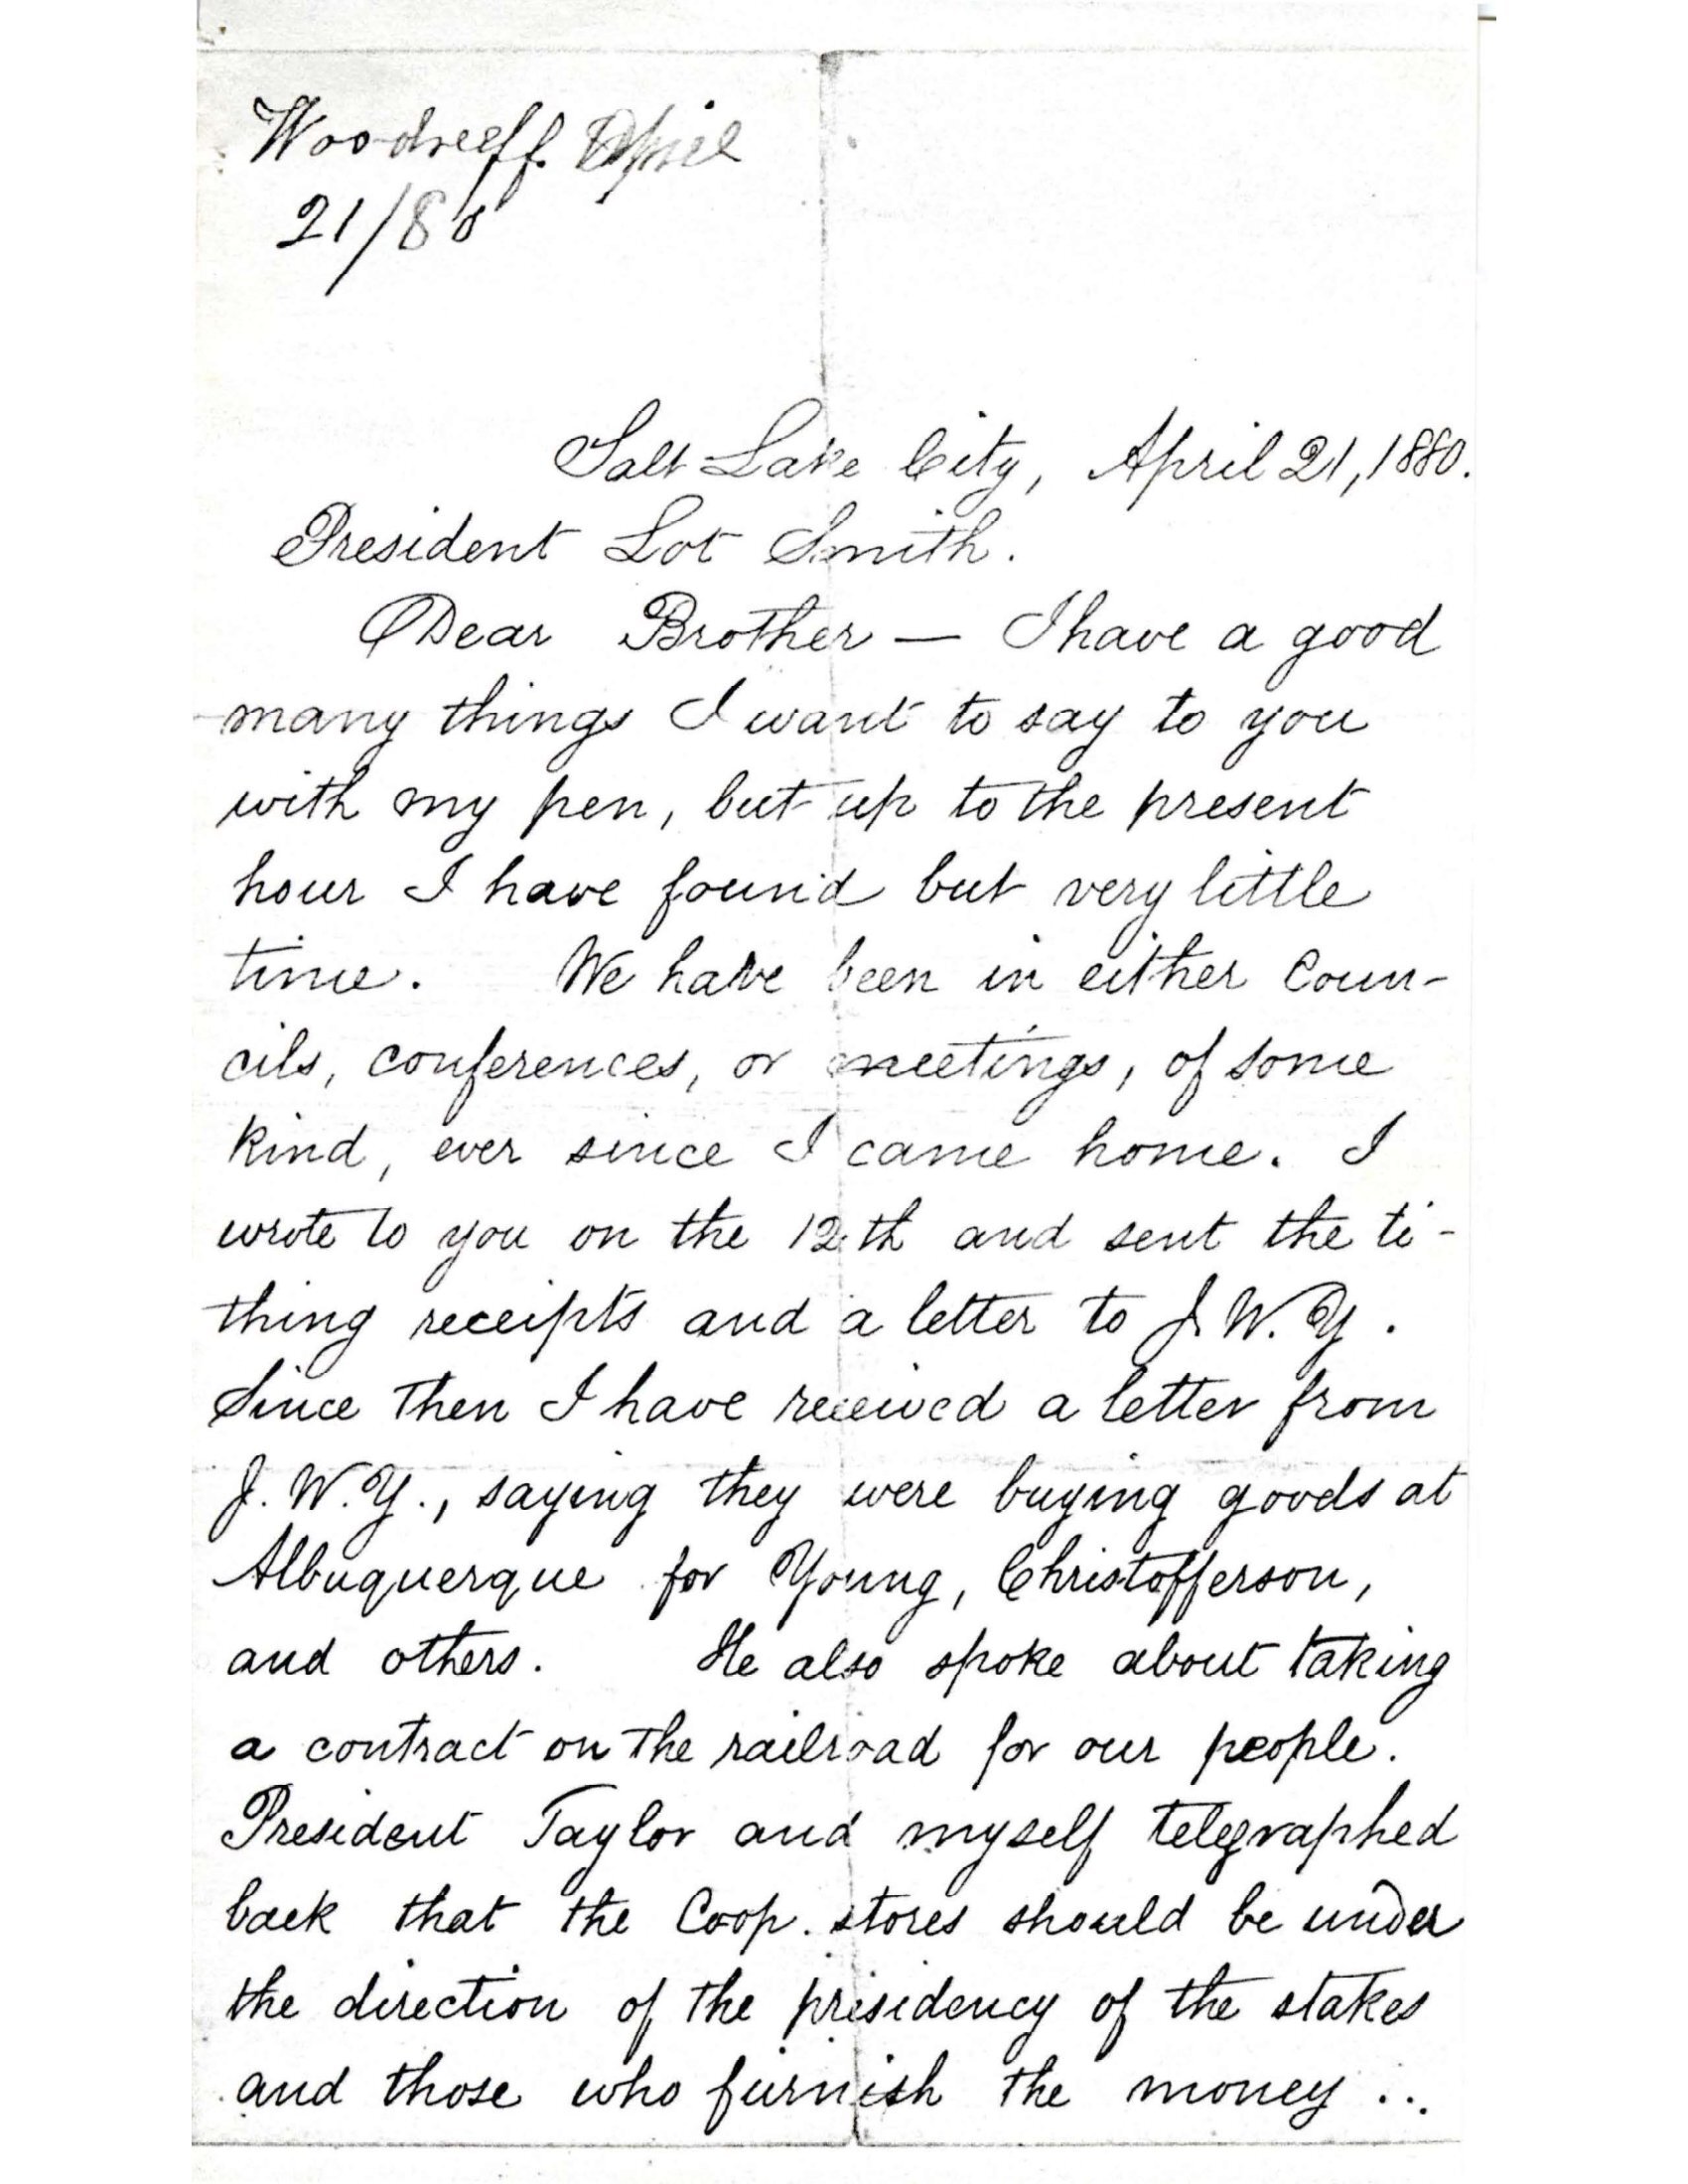 Woodruff April
21/80
Salt Lake City, April 21, 1880.
President Lot Smith.
Dear Brother — I have a good
many things I want to say to you
with my pen, but up to the present
hour I have found but very little
time. We have been in either Coun-
cils, conferences, or meetings, of some
kind, ever since I came home. I
wrote to you on the 12th and sent the ti-
thing receipts and a letter to J. W. Y.
Since then I have received a letter from
J. W. Y., saying they were buying goods at
Albuquerque for Young, Christofferson,
and others. He also spoke about taking
a contract on the railroad for our people.
President Taylor and myself telegraphed
back that the Coop. stores should be under
the direction of the presidency of the stakes
and those who furnish the money ...